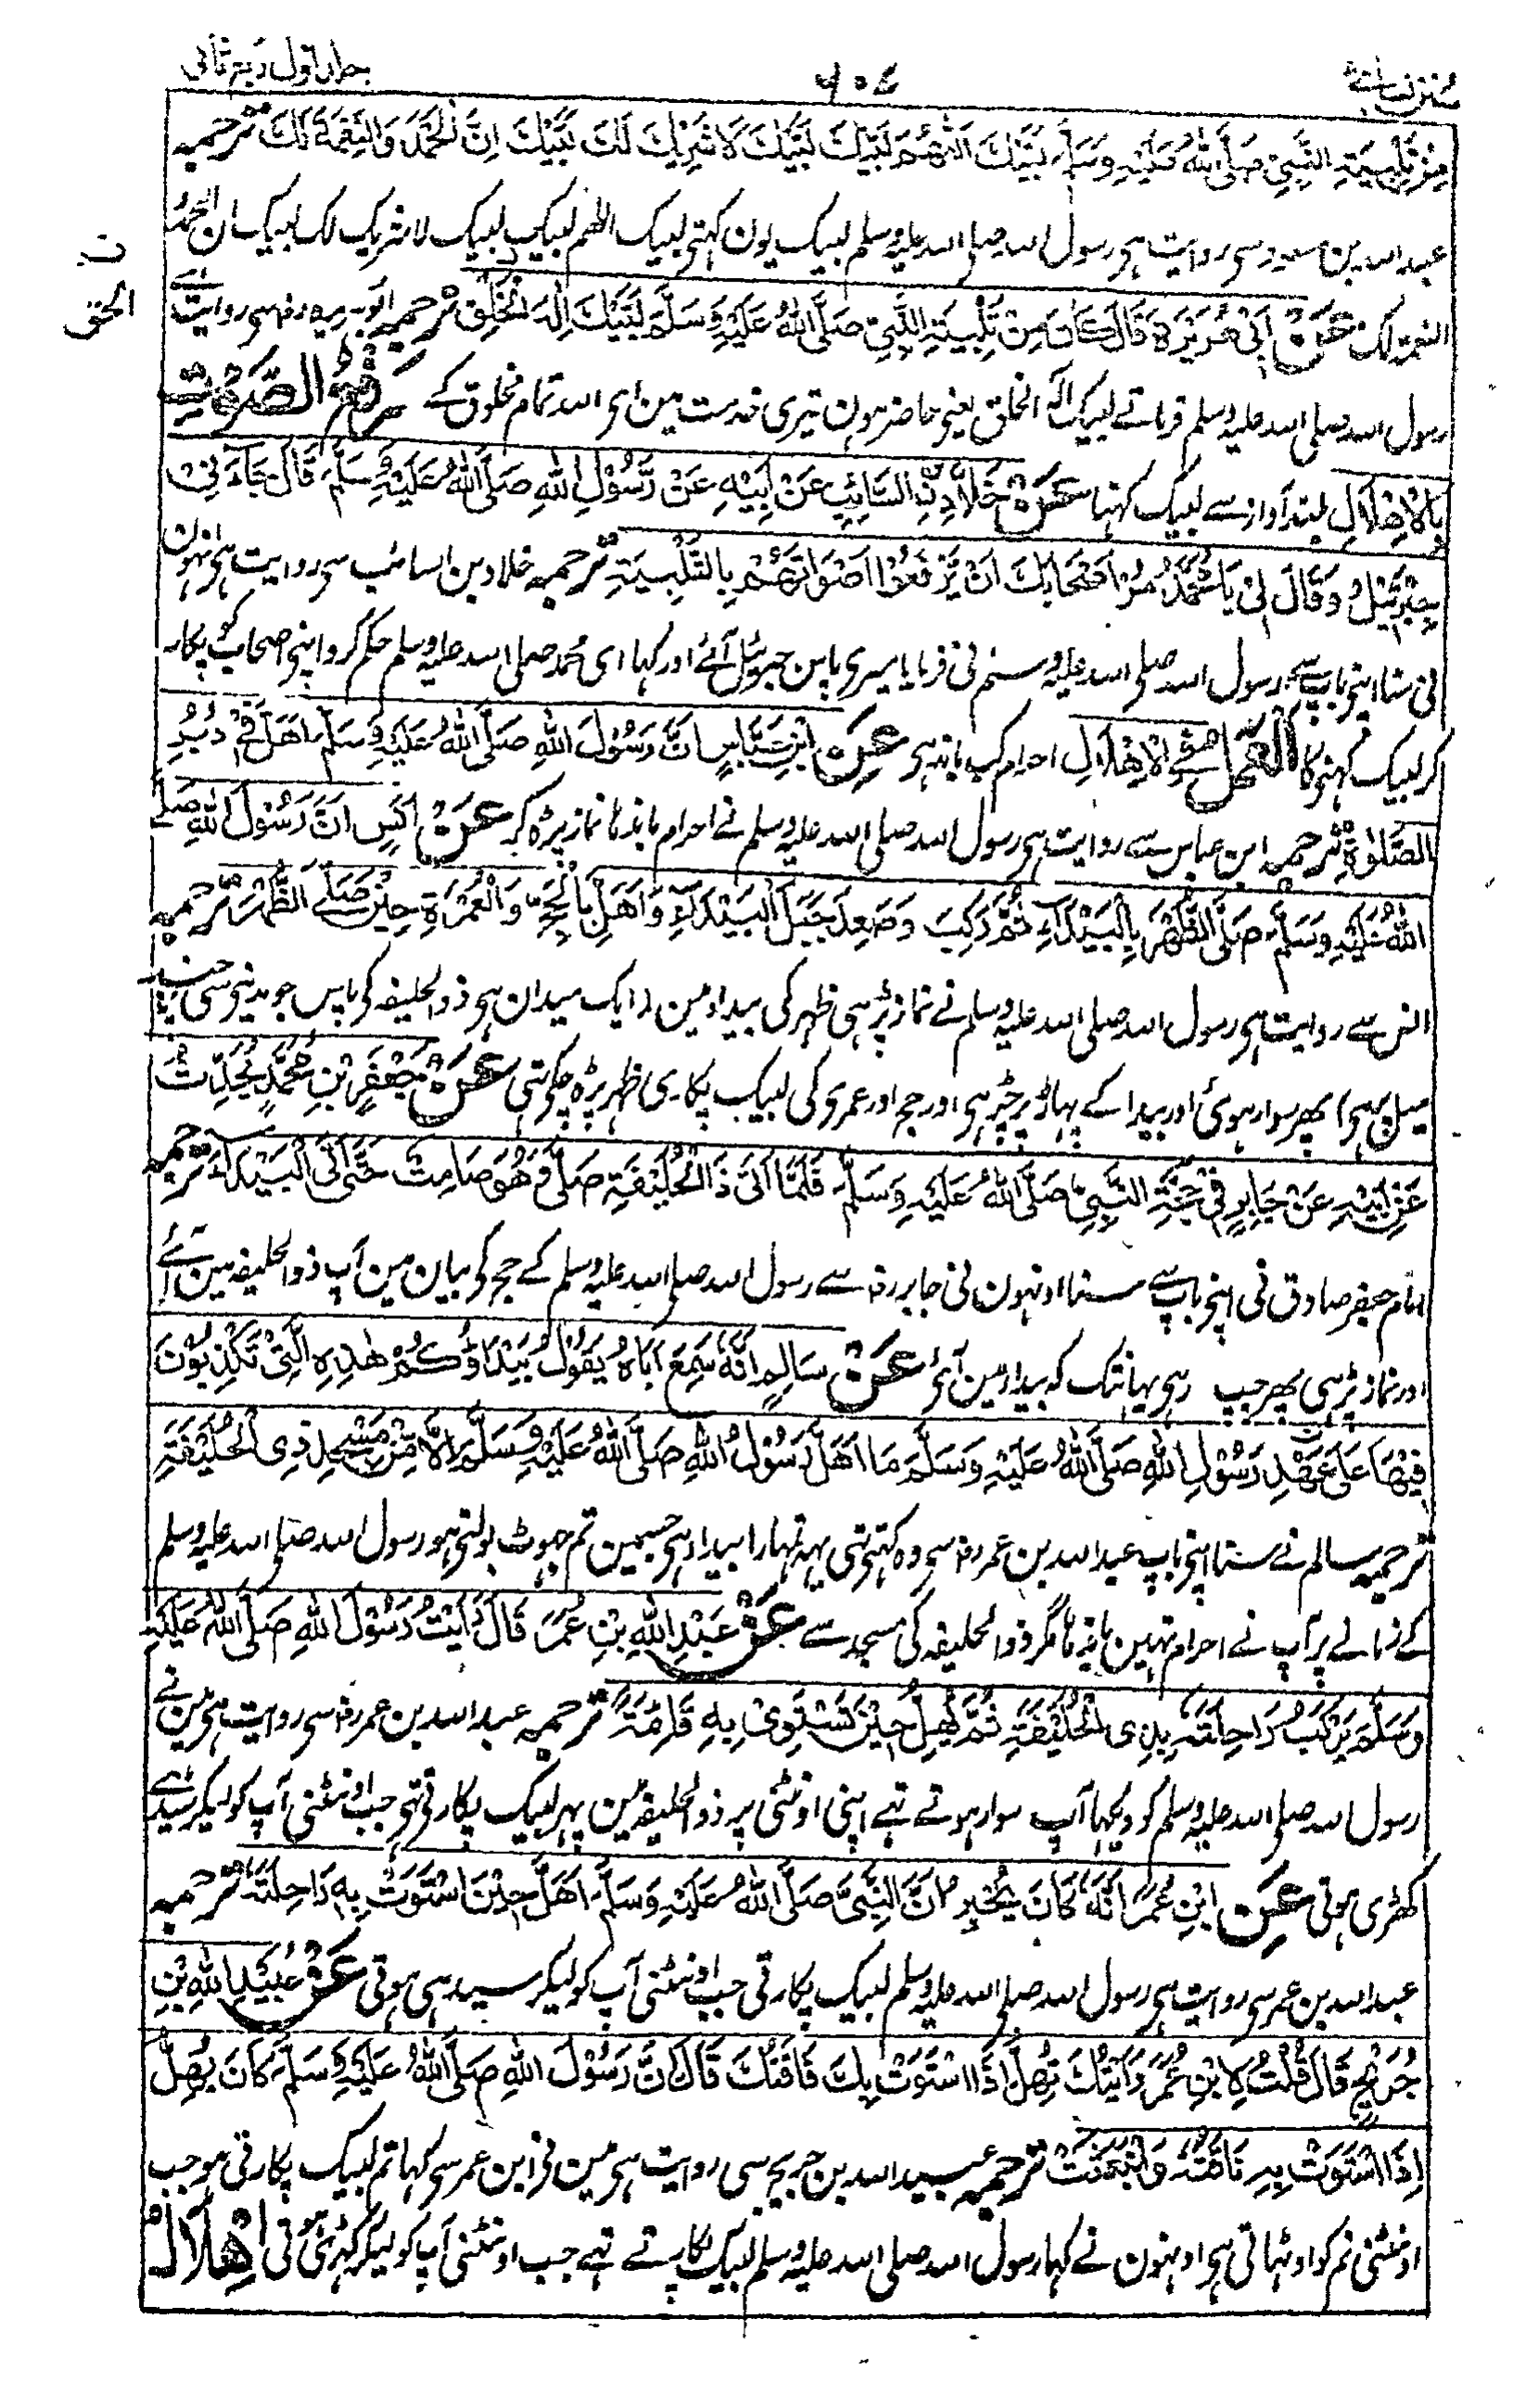 سنن نسائی ۶۰۷ جلد اول ربع ثانی
مِنْ تَلْبِيَةِ النَّبِيِّ صَلَّى اللهُ عَلَيْهِ وَسَلَّمَ لَبَّيْكَ اَللّٰهُمَّ لَبَّيْكَ لَبَّيْكَ لَا شَرِيْكَ لَكَ لَبَّيْكَ اِنَّ الْحَمْدَ وَالنِّعْمَةَ لَكَ ترجمہ
عبد اللہ بن مسعود سی روایت ہی رسول اللہ صلی اللہ علیہ وسلم لبیک یون کہتی لبیک اللھم لبیک لبیک لا شریک لک لبیک ان الحمد
النعمۃ لک عَنْ اَبِيْ هُرَيْرَةَ قَالَ كَانَ مِنْ تَلْبِيَةِ النَّبِيِّ صَلَّى اللهُ عَلَيْهِ وَسَلَّمَ لَبَّيْكَ اِلٰهَ الْخَلْقِ ترجمہ ابو ہریرہ رضہ سی روایت ہے
ن الحق
رسول اللہ صلی اللہ علیہ وسلم فرماتے لبیک الٰہ الخلق یعنی حاضر ہون تیری خدمت مین ای اللہ تمام مخلوق کے رَفْعُ الصَّوْتِ
بِالْاِهْلَالِ بلند آواز سے لبیک کہنا عَنْ خَلَّادِ بْنِ السَّائِبِ عَنْ اَبِيْهِ عَنْ رَّسُوْلِ اللهِ صَلَّى اللهُ عَلَيْهِ وَسَلَّمَ قَالَ جَاءَنِيْ
جِبْرَئِيْلُ وَقَالَ لِيْ يَا مُحَمَّدُ مُرْ اَصْحَابَكَ اَنْ يَّرْفَعُوْا اَصْوَاتَهُمْ بِالتَّلْبِيَةِ ترجمہ خلاد بن السائب سی روایت ہی انہون
نی سنا اپنی باپ سی رسول اللہ صلی اللہ علیہ وسلم نی فرمایا میری پاس جبرئیل آئے اور کہا ای محمد صلی اللہ علیہ وسلم حکم کرو اپنی اصحاب کو پکار
کر لبیک کہنی کا اَلْعَمَلُ فِي الْاِهْلَالِ احرام کب باندہی عَنِ ابْنِ عَبَّاسٍ اَنَّ رَسُوْلَ اللهِ صَلَّى اللهُ عَلَيْهِ وَسَلَّمَ اَهَلَّ فِيْ دُبُرِ
الصَّلٰوةِ ترجمہ ابن عباس سے روایت ہی رسول اللہ صلی اللہ علیہ وسلم نے احرام باندہا نماز پڑہ کر عَنْ اَنَسٍ اَنَّ رَسُوْلَ اللهِ صَلَّى
اللهُ عَلَيْهِ وَسَلَّمَ صَلَّى الظُّهْرَ بِالْبَيْدَاءِ ثُمَّ رَكِبَ وَصَعِدَ جَبَلَ الْبَيْدَاءِ وَاَهَلَّ بِالْحَجِّ وَالْعُمْرَةِ حِيْنَ صَلَّى الظُّهْرَ ترجمہ
انس سے روایت ہی رسول اللہ صلی اللہ علیہ وسلم نے نماز پڑہی ظہر کی بیداء مین (ایک میدان ہی ذوالحلیفہ کی پاس جو مدینی سی چند
میل پر ہی) پھر سوار ہوئی اور بیدا کے پہاڑ پر چڑہی اور حج اور عمری کی لبیک پکاری ظہر پڑہ چکی تہی عَنْ جَعْفَرِ بْنِ مُحَمَّدٍ يُحَدِّثُ
عَنْ اَبِيْهِ عَنْ جَابِرٍ فِيْ حَجَّةِ النَّبِيِّ صَلَّى اللهُ عَلَيْهِ وَسَلَّمَ فَلَمَّا اَتٰى ذَا الْحُلَيْفَةِ صَلَّى وَهُوَ صَامِتٌ حَتّٰى اَتَى الْبَيْدَاءَ ترجمہ
امام جعفر صادق نی اپنی باپ سے سنا اونہون نی جابر رضہ سے رسول اللہ صلی اللہ علیہ وسلم کے حج کی بیان مین آپ ذوالحلیفہ مین آئے
اور نماز پڑہی پھر چپ رہی یہانتک کہ بیداء مین آئی عَنْ سَالِمٍ اَنَّهُ سَمِعَ اَبَاهُ يَقُوْلُ بَيْدَاؤُكُمْ هٰذِهِ الَّتِيْ تَكْذِبُوْنَ
فِيْهَا عَلٰى عَهْدِ رَسُوْلِ اللهِ صَلَّى اللهُ عَلَيْهِ وَسَلَّمَ مَا اَهَلَّ رَسُوْلُ اللهِ صَلَّى اللهُ عَلَيْهِ وَسَلَّمَ اِلَّا مِنْ مَسْجِدِ ذِي الْحُلَيْفَةِ
ترجمہ سالم نے سنا اپنی باپ عبد اللہ بن عمر رضہ سی وہ کہتی تہی یہہ تمہارا بیداء ہی جسمین تم جہوٹ بولتی ہو رسول اللہ صلی اللہ علیہ وسلم
کے زمانے پر آپ نے احرام نہین باندہا مگر ذوالحلیفہ کی مسجد سے عَنْ عَبْدِ اللهِ بْنِ عُمَرَ قَالَ رَاَيْتُ رَسُوْلَ اللهِ صَلَّى اللهُ عَلَيْهِ
وَسَلَّمَ يَرْكَبُ رَاحِلَتَهُ بِذِي الْحُلَيْفَةِ ثُمَّ يُهِلُّ حِيْنَ تَسْتَوِيْ بِهِ قَائِمَةً ترجمہ عبد اللہ بن عمر رضہ سی روایت ہی مین نے
رسول اللہ صلی اللہ علیہ وسلم کو دیکہا آپ سوار ہوتے تہے اپنی اونٹنی پر ذوالحلیفہ مین پہر لبیک پکارتی تہی جب اونٹنی آپ کو لیکر سیدہی
کھڑی ہوتی عَنِ ابْنِ عُمَرَ اَنَّهُ كَانَ يُخْبِرُ اَنَّ النَّبِيَّ صَلَّى اللهُ عَلَيْهِ وَسَلَّمَ اَهَلَّ حِيْنَ اسْتَوَتْ بِهِ رَاحِلَتُهُ ترجمہ
عبد اللہ بن عمر سی روایت ہی رسول اللہ صلی اللہ علیہ وسلم لبیک پکارتی جب اونٹنی آپ کو لیکر سیدہی ہوتی عَنْ عُبَيْدِ اللهِ بْنِ
جُرَيْجٍ قَالَ قُلْتُ لِابْنِ عُمَرَ رَاَيْتُكَ تُهِلُّ اِذَا اسْتَوَتْ بِكَ نَاقَتُكَ قَالَ اِنَّ رَسُوْلَ اللهِ صَلَّى اللهُ عَلَيْهِ وَسَلَّمَ كَانَ يُهِلُّ
اِذَا اسْتَوَتْ بِهِ نَاقَتُهُ وَانْبَعَثَتْ ترجمہ عبید اللہ بن جریج سی روایت ہی مین نی ابن عمر سی کہا تم لبیک پکارتی ہو جب
اونٹنی تم کو اوٹہاتی ہی اونہون نے کہا رسول اللہ صلی اللہ علیہ وسلم لبیک پکارتے تہے جب اونٹنی آپ کو لیکر کہڑی ہوتی اِهْلَالُ